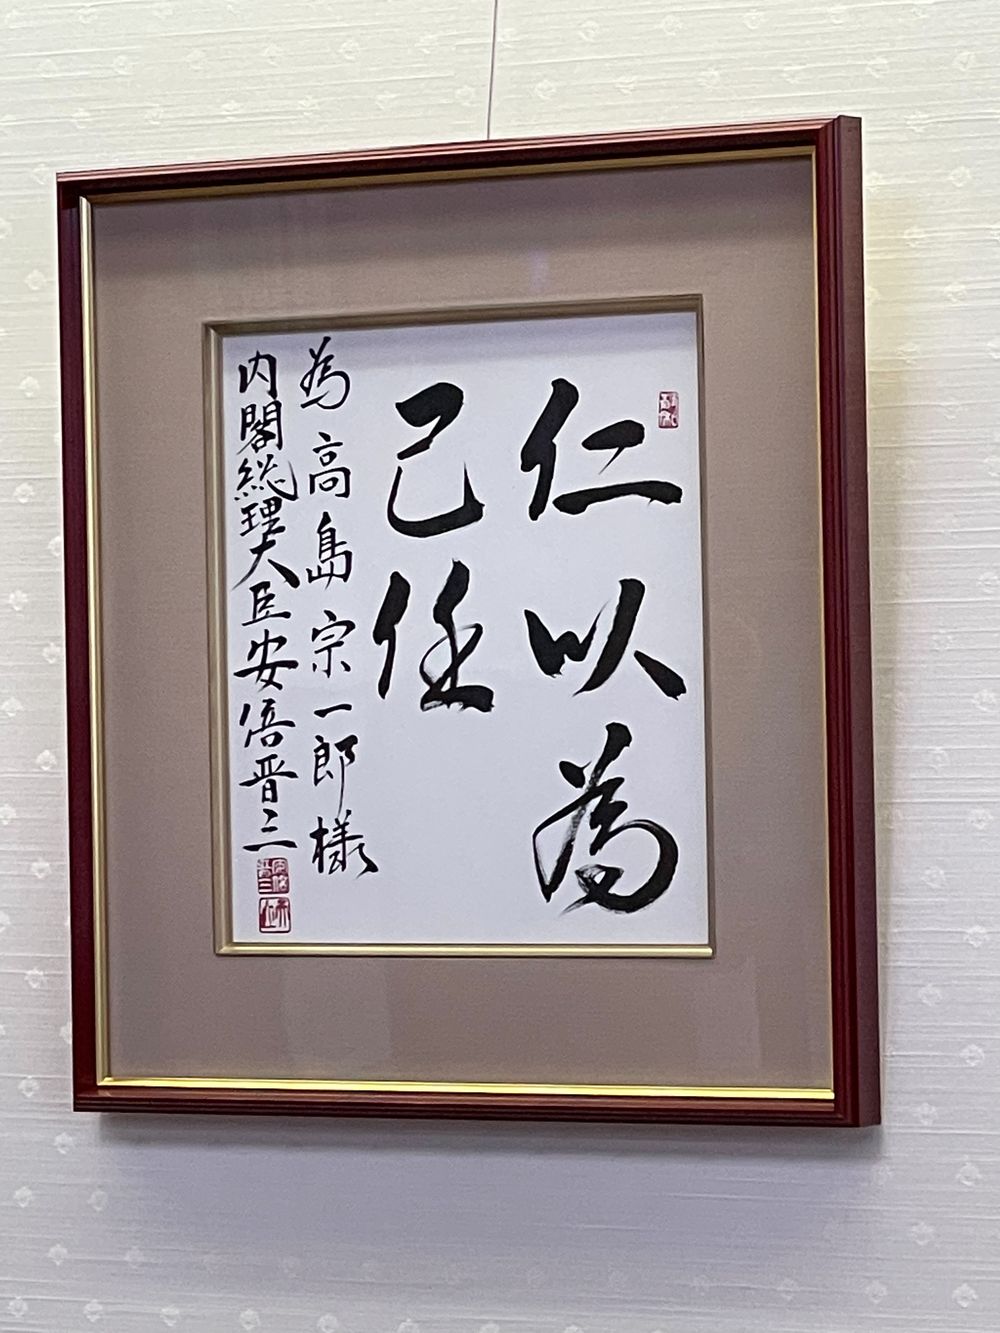 仁以為
己任
為 高島宗一郎様
内閣総理大臣安倍晋三